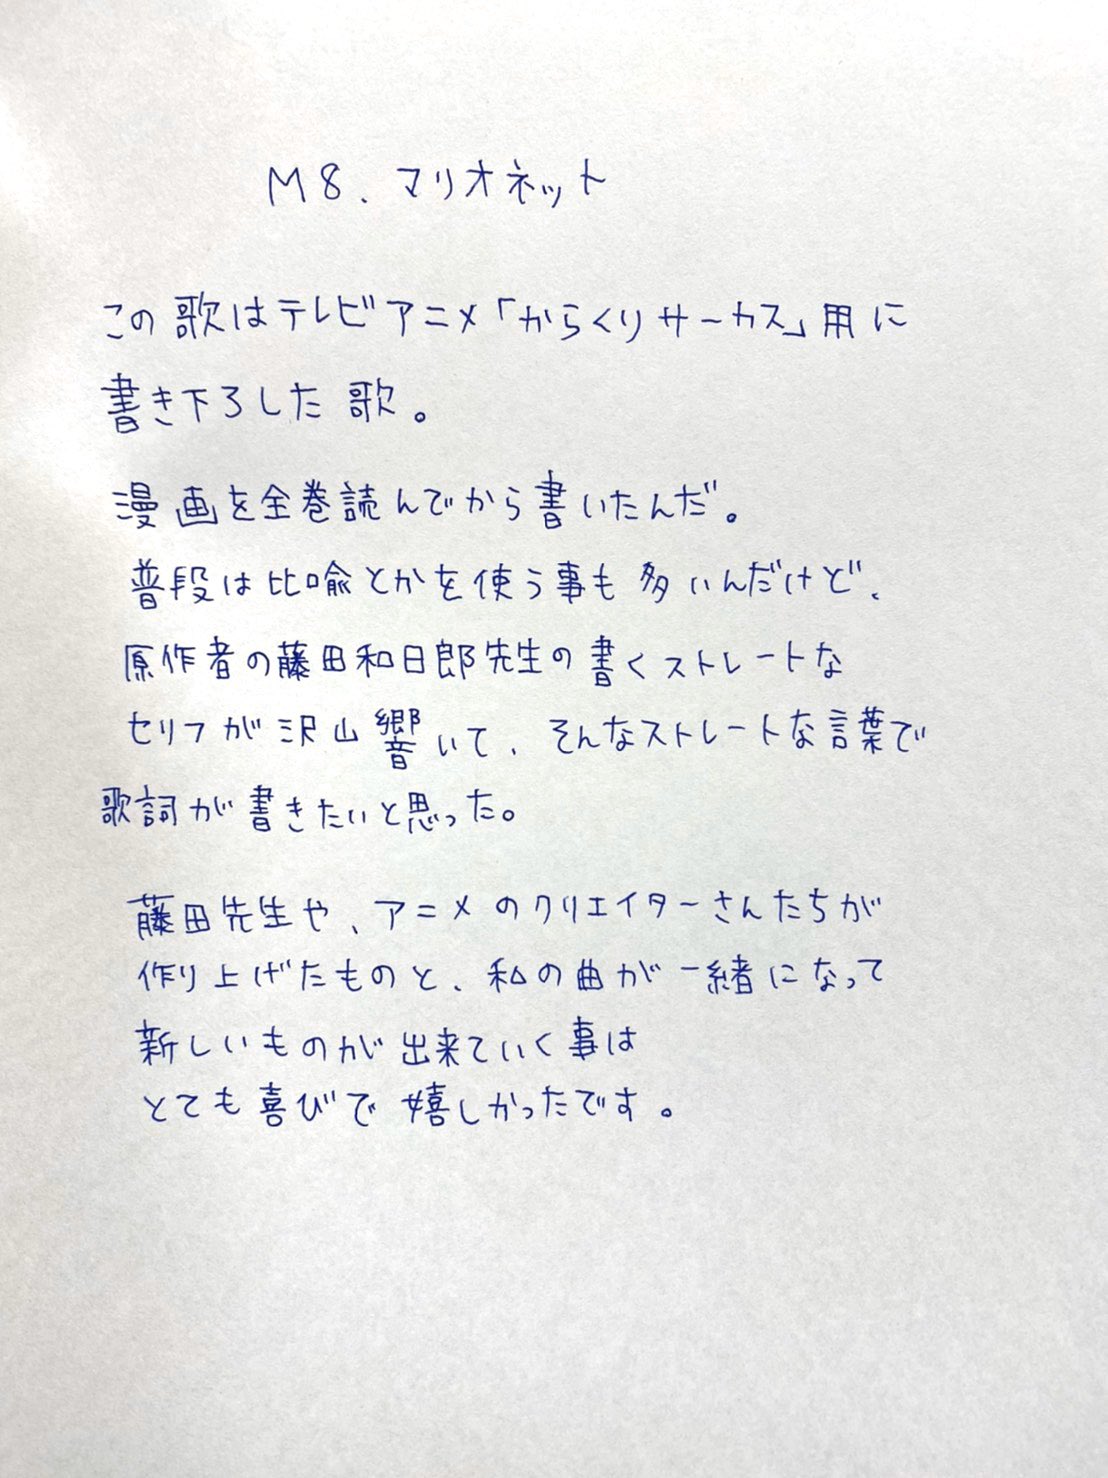 M8、マリオネット
この歌はテレビアニメ「からくりサーカス」用に
書き下ろした歌。
漫画を全巻読んでから書いたんだ。
普段は比喩とかを使う事も多いんだけど、
原作者の藤田和日郎先生の書くストレートな
セリフが沢山響いて、そんなストレートな言葉で
歌詞が書きたいと思った。
藤田先生や、アニメのクリエイターさんたちが
作り上げたものと、私の曲が一緒になって
新しいものが出来ていく事は
とても喜びで嬉しかったです。